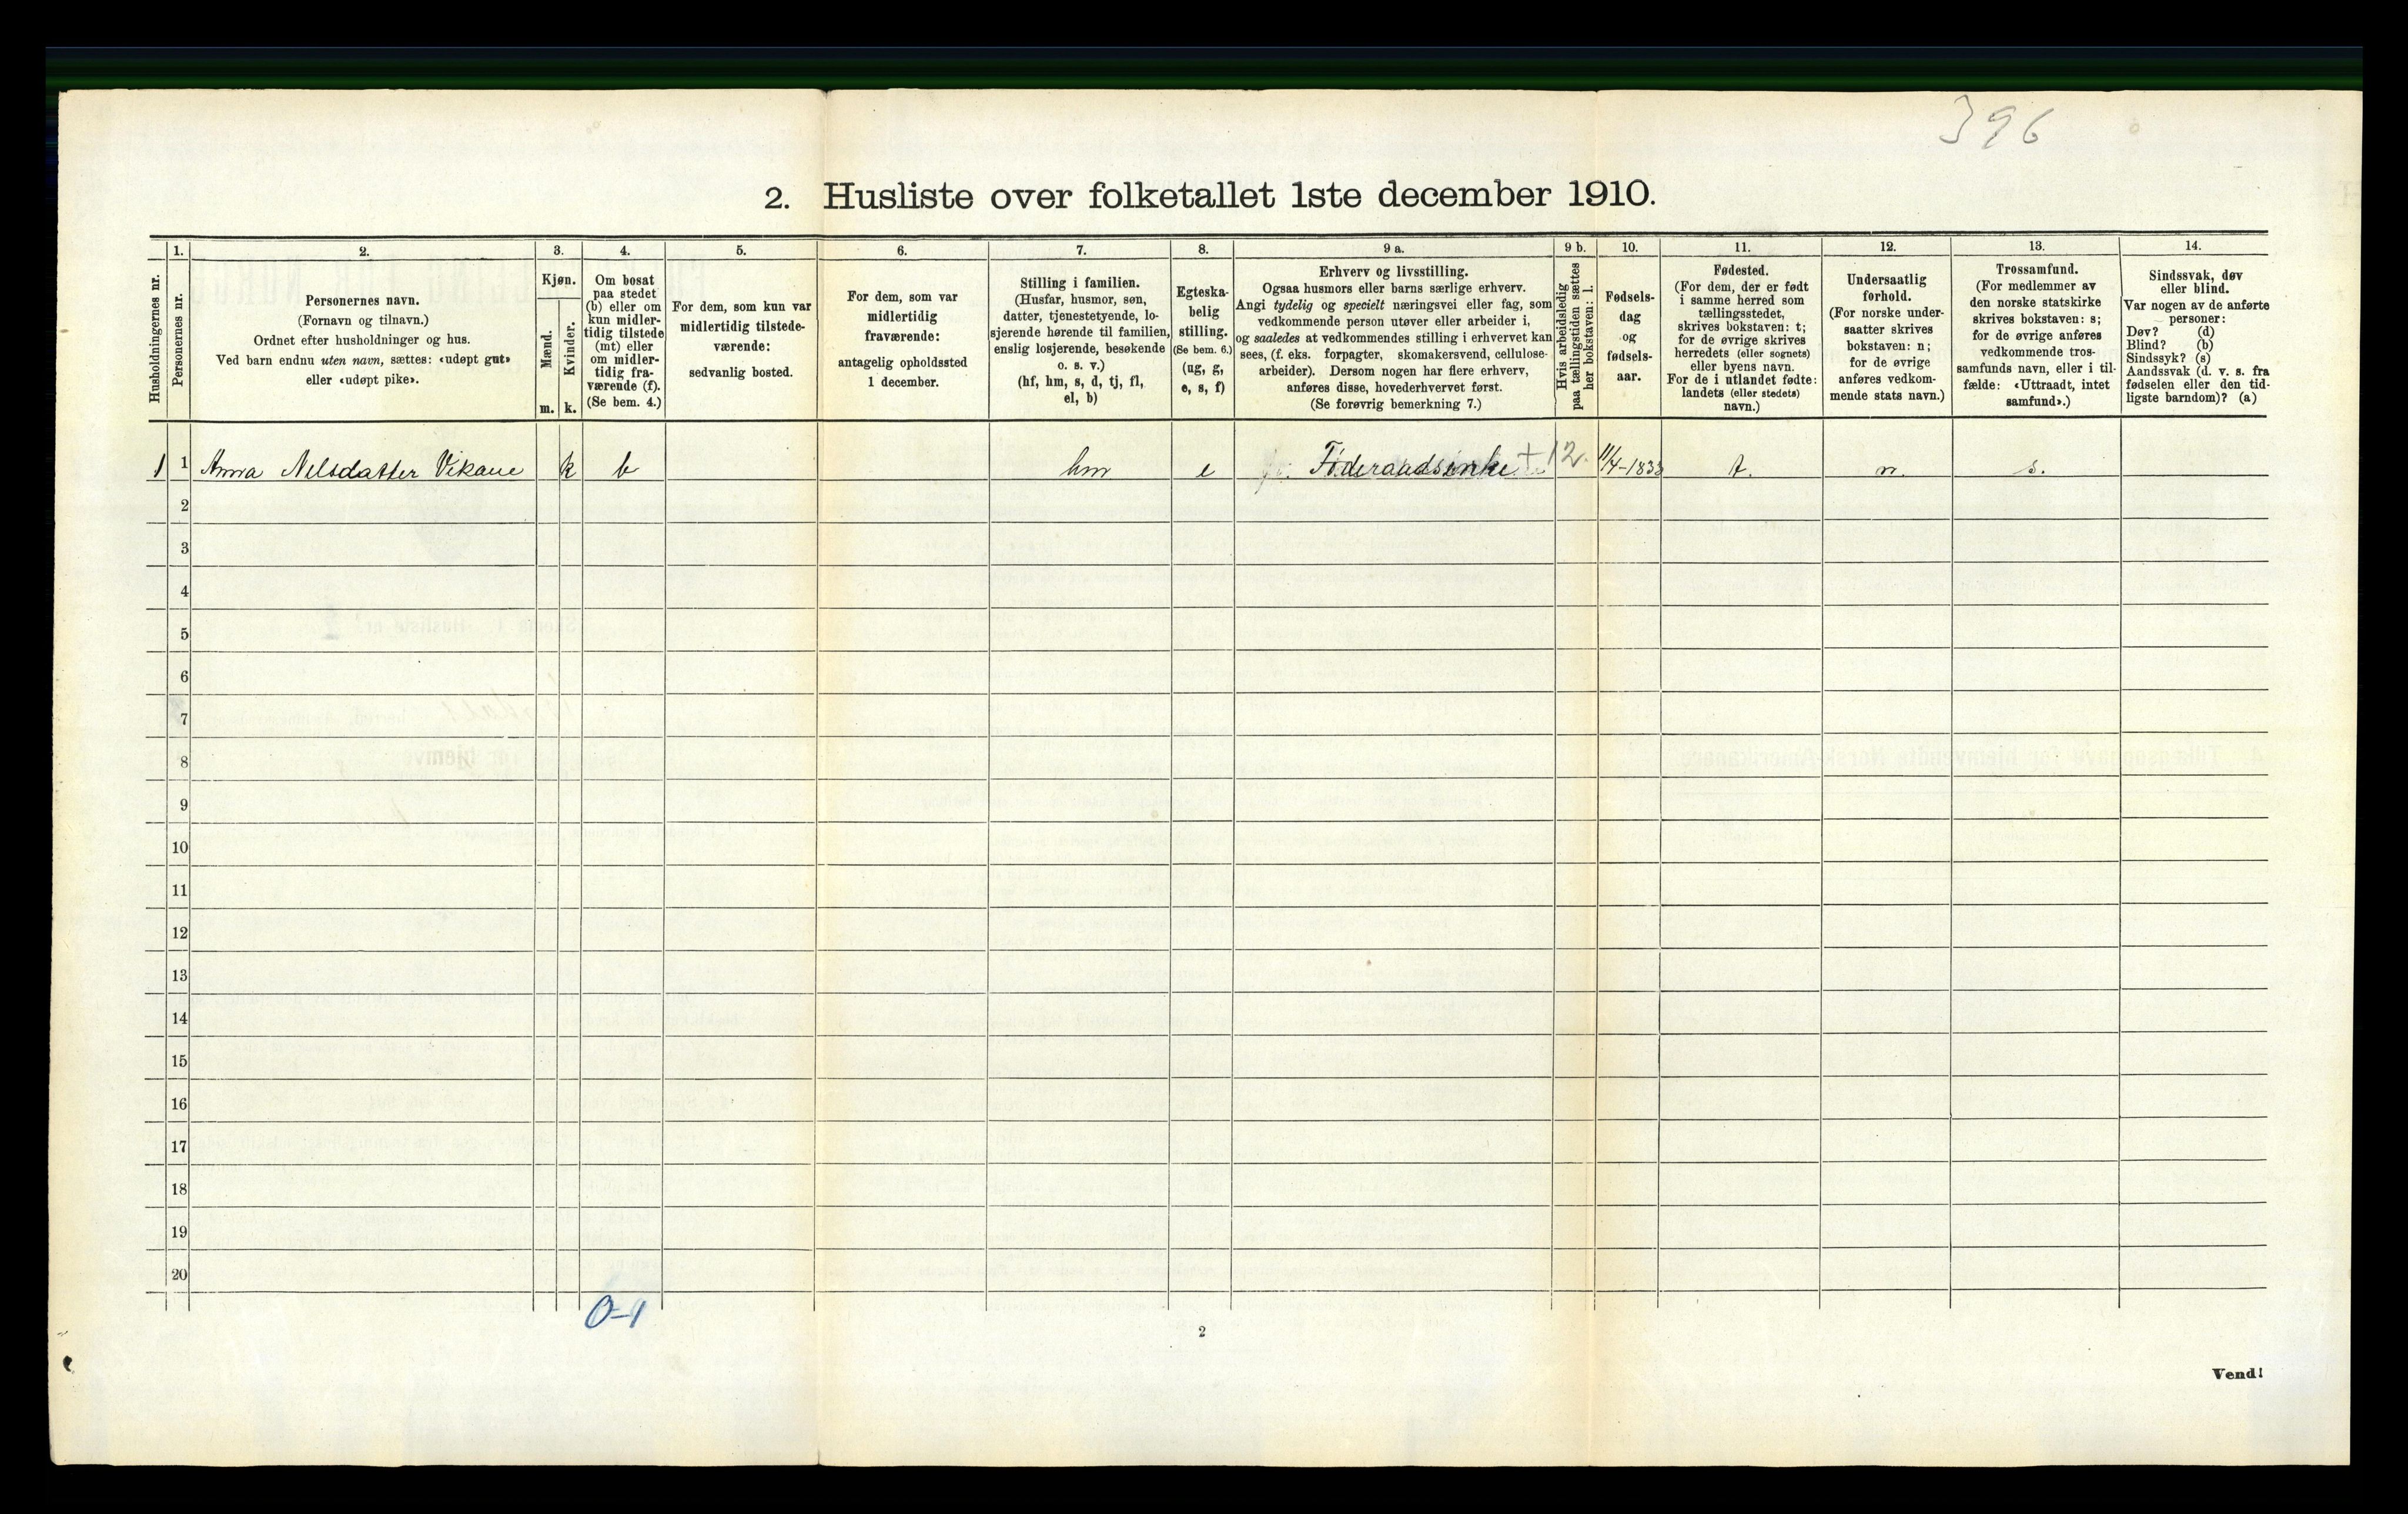 396
2. Husliste over folketallet 1ste december 1910.
Husholdningernes nr.
1.
Personernes nr.
2.
Personernes navn.
(Fornavn og tilnavn.)
Ordnet efter husholdninger og hus.
Ved barn endnu uten navn, sættes: «udøpt gut»
eller «udøpt pike».
3.
Kjøn.
Mænd.
m.
Kvinder.
k.
4.
Om bosat
paa stedet
(b) eller om
kun midler-
tidig tilstede
(mt) eller
om midler-
tidig fra-
værende (f).
(Se bem. 4.)
5.
For dem, som kun var
midlertidig tilstede-
værende:
sedvanlig bosted.
6.
For dem, som var
midlertidig
fraværende:
antagelig opholdssted
1 december.
7.
Stilling i familien.
(Husfar, husmor, søn,
datter, tjenestetyende, lo-
sjerende hørende til familien,
enslig losjerende, besøkende
o. s. v.)
(hf, hm, s, d, tj, fl,
el, b)
8.
Egteska-
belig
stilling.
(Se bem. 6.)
(ug, g,
e, s, f)
9 a.
Erhverv og livsstilling.
Ogsaa husmors eller barns særlige erhverv.
Angi tydelig og specielt næringsvei eller fag, som
vedkommende person utøver eller arbeider i,
og saaledes at vedkommendes stilling i erhvervet kan
sees, (f. eks. forpagter, skomakersvend, cellulose-
arbeider). Dersom nogen har flere erhverv,
anføres disse, hovederhvervet først.
(Se forøvrig bemerkning 7.)
9 b.
Hvis arbeidsledig
paa tællingstiden sættes
her bokstaven: l.
10.
Fødsels-
dag
og
fødsels-
aar.
11.
Fødested.
(For dem, der er født
i samme herred som
tællingsstedet,
skrives bokstaven: t;
for de øvrige skrives
herredets (eller sognets)
eller byens navn.
For de i utlandet fødte:
landets (eller stedets)
navn.)
12.
Undersaatlig
forhold.
(For norske under-
saatter skrives
bokstaven: n;
for de øvrige
anføres vedkom-
mende stats navn.)
13.
Trossamfund.
(For medlemmer av
den norske statskirke
skrives bokstaven: s;
for de øvrige anføres
vedkommende tros-
samfunds navn, eller i til-
fælde: «Uttraadt, intet
samfund».)
14.
Sindssvak, døv
eller blind.
Var nogen av de anførte
personer:
Døv? (d)
Blind? (b)
Sindssyk? (s)
Aandssvak (d. v. s. fra
fødselen eller den tid-
ligste barndom)? (a)
1 1 Anna Nilsdatter Vikane k b hm e Føderaadsenke +12. 11/4-1833 t. n. s.
2
3
4
5
6
7
8
9
10
11
12
13
14
15
16
17
18
19
20
0-1
2
Vend!